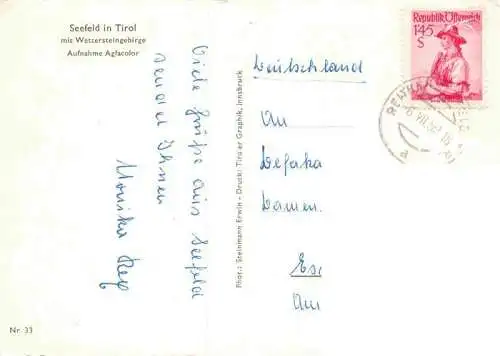 Seefeld in Tirol
mit Wettersteingebirge
Aufnahme Agfacolor
Viele Grüße aus Seefeld
sendet Ihnen
Monika
Nr 33
Phot.: Steinmann Erwin - Druck: Tiroler Graphik, Innsbruck
Republik Österreich
1'45
S
Deutschland
An
Defaka
Damen